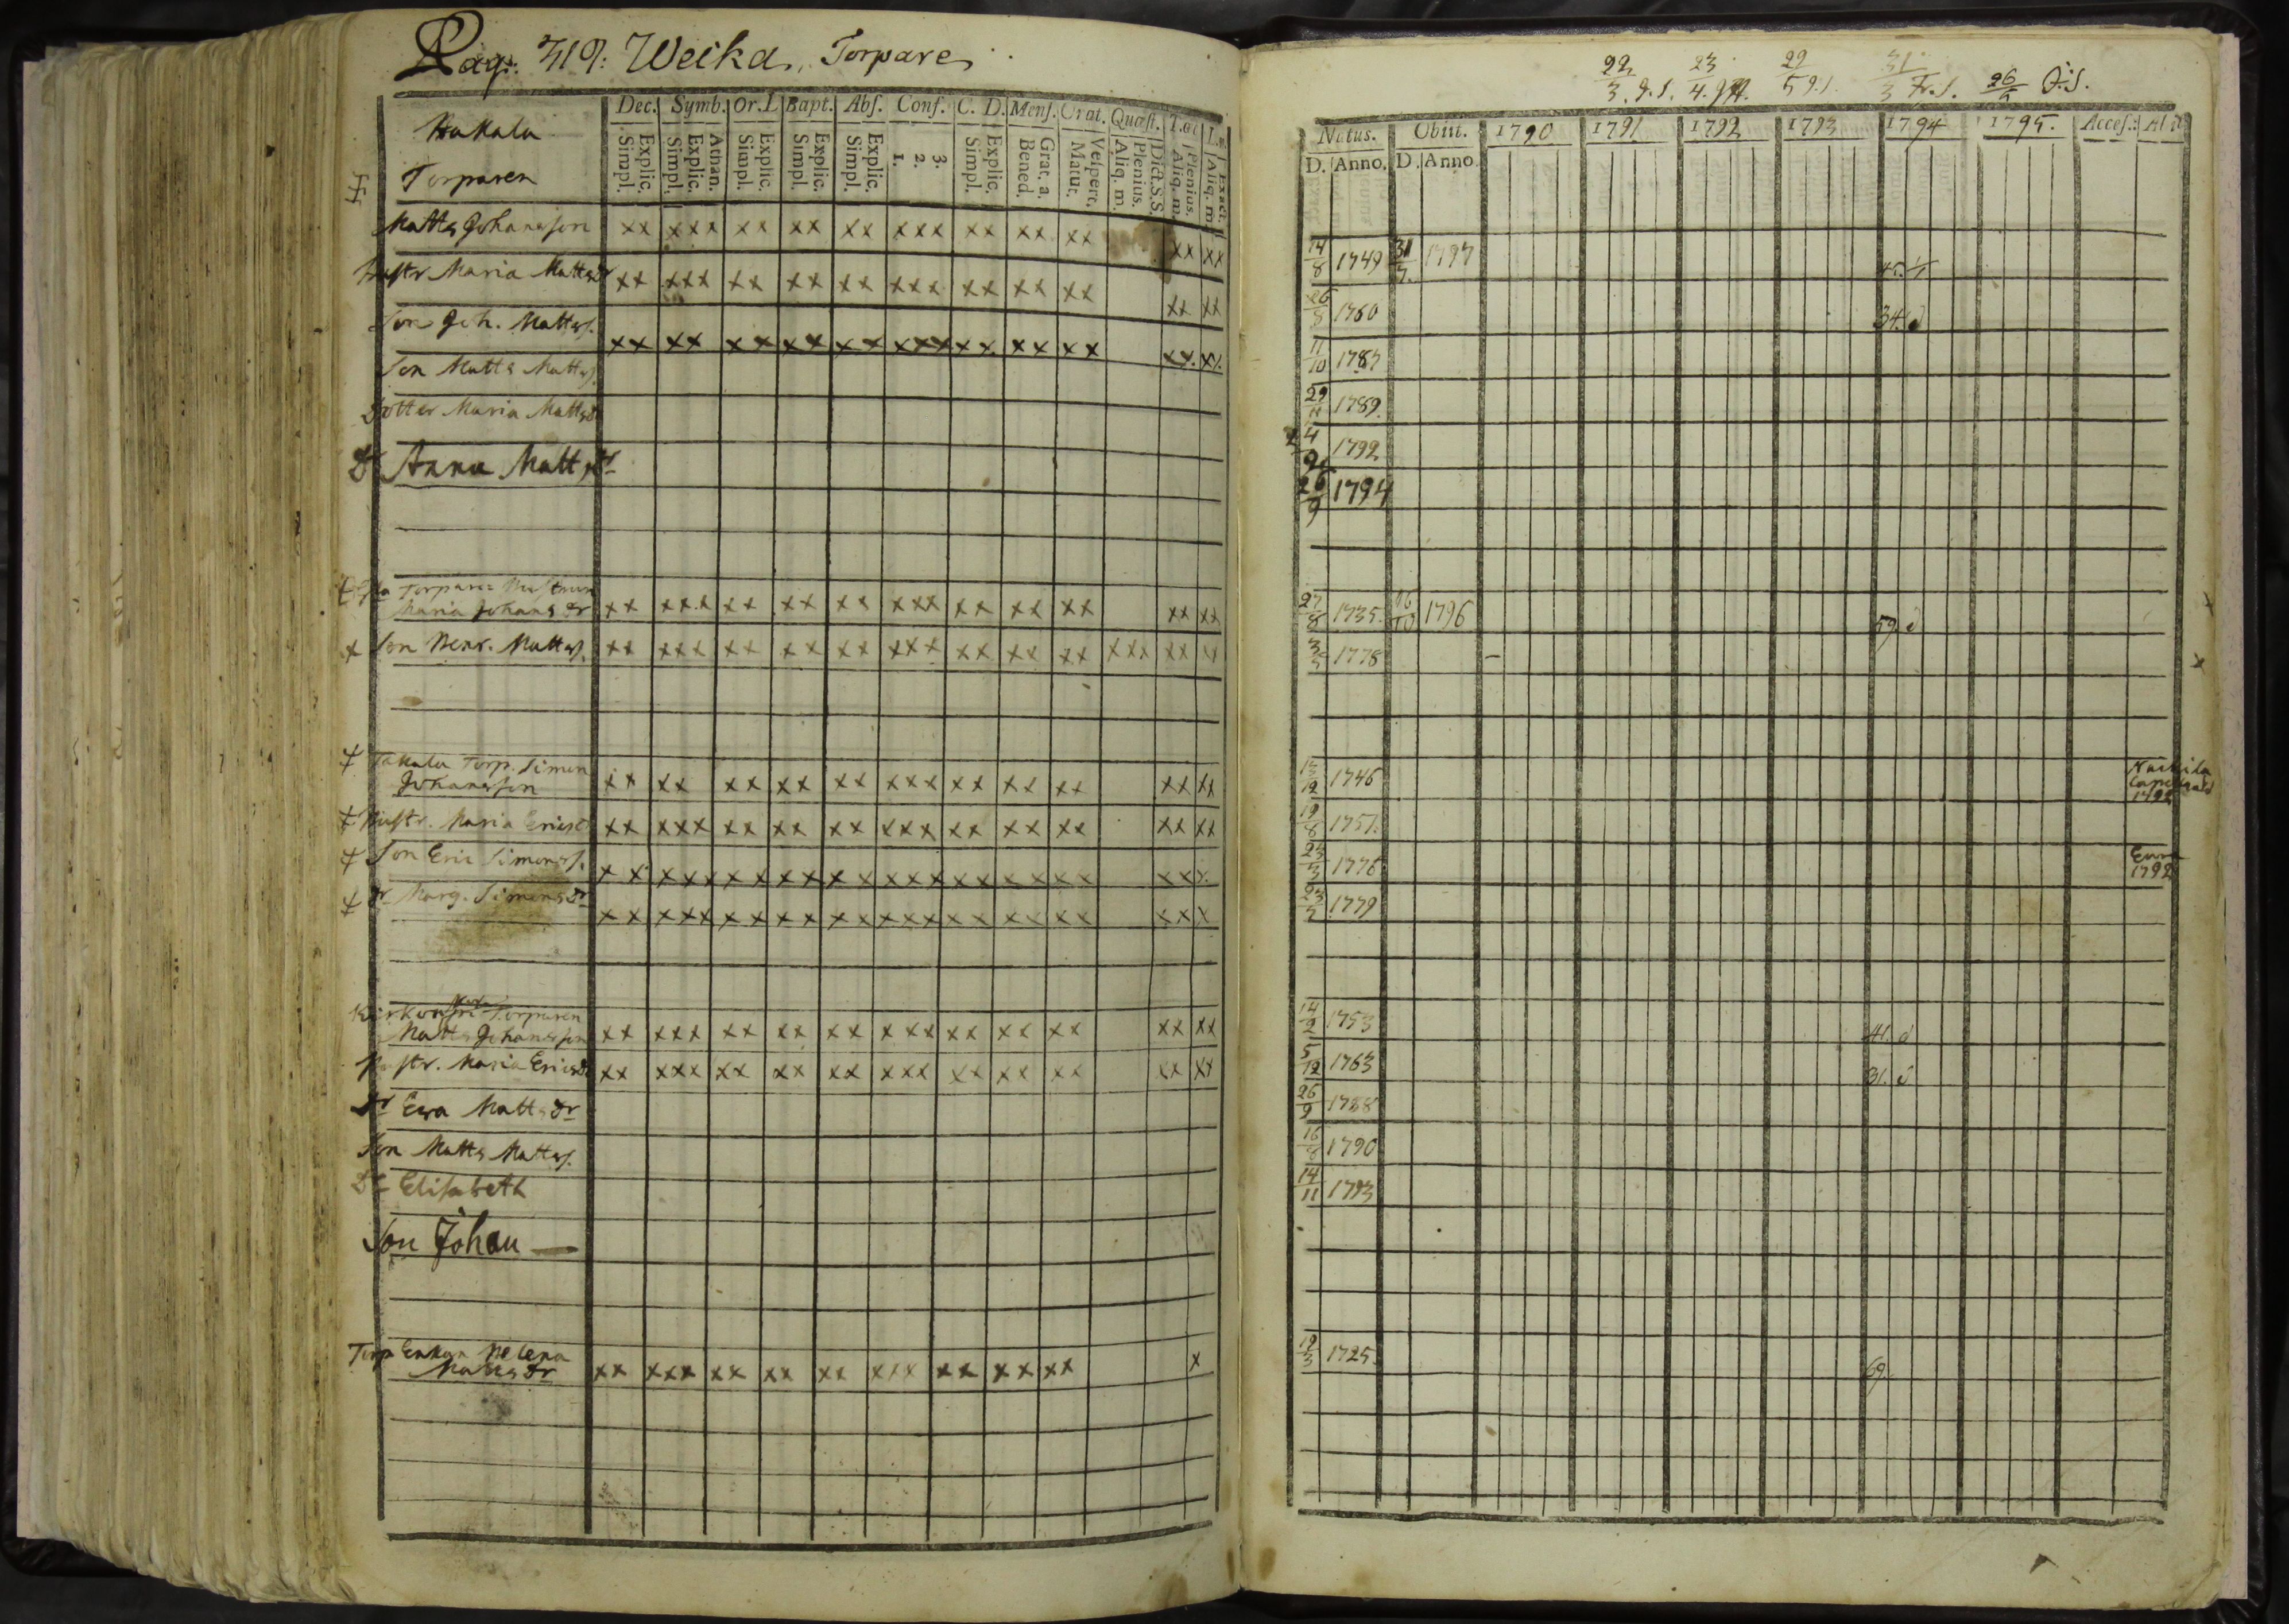 Pag: 319. Weika, Torpare
Dec. Symb. Or. D. Bapt. Abs. Conf. C. D. Mens. Orat. Quæst. L.
Explic. Simpl. Athan. Explic. Simpl. Explic. Simpl. Explic. Simpl. Explic. Simpl. 3. 2. 1. Explic. Simpl. Grat. a. Bened. Vespert. Matut. Dict. S. S. Plenius. Aliq. m. Plenius. Aliq. m. Exact. Aliq. m.
Hakala
Torparen
Matts Johansson xx xxx xx xx xx xxx xx xx xx xx xx
Hustr Maria Mattsdr xx xxx xx xx xx xxx xx xx xx xx xx
Son Joh. Mattss. xx xx xx xx xx xxx xx xx xx xx xx
Son Matts Mattss.
Dotter Maria Mattsd
Dr Anna Mattsdr
Torpare Hustrun
Maria Johansdr xx xxx xx xx xx xxx xx xx xx xx xx
Son Henr. Mattss. xx xxx xx xx xx xxx xx xx xx xxx xx
Takala Torp. Simon
Johansson xx xx xx xx xx xxx xx xx xx xx xx
Hustr. Maria Ericsd xx xxx xx xx xx xxx xx xx xx xx xx
Son Eric Simonss. xx xxx xx xx xx xxx xx xx xx xx x
Dr Marg. Simonsdr xx xxx xx xx xx xxx xx xx xx xx x
Torparen
Matts Johansson xx xxx xx xx xx xxx xx xx xx xx xx
Hustr. Maria Ericsdr xx xxx xx xx xx xxx xx xx xx xx xx
Dr Ewa Mattsdr
Son Matts Mattss.
Dr Elisabeth
Son Johan —
Torp Enkan Helena
Mattsdr xx xxx xx xx xx xxx xx xx xx x
22/3 23/4 29/5 31/3 26
Natus. Obiit. 1790 1791 1792 1793 1794 1795. Acces.
D. Anno. D. Anno.
14/8 1749 1797 45.
1760 34.
11/10 1787
29/11 1789.
1792
26/9 1794
27/8 1735. 16/10 1796 59.
1778 —
1746 1792
19/8 1751.
1776 Eura 1792
1779
14/2 1753 41.
5/12 1763 31.
26/9 1788
16/8 1790
14/11 1793
12/3 1725. 69.